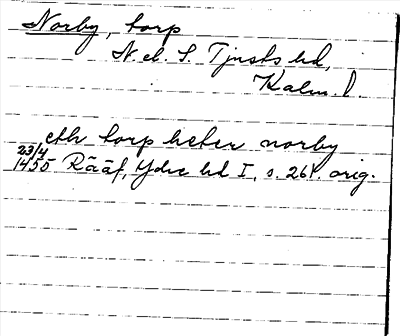 Norby, torp
N el. S. Tjusts hd,
Kalm. l.
eth torp heter norby
23/4
1455 Rääf, Ydre hd I, s. 261. orig.